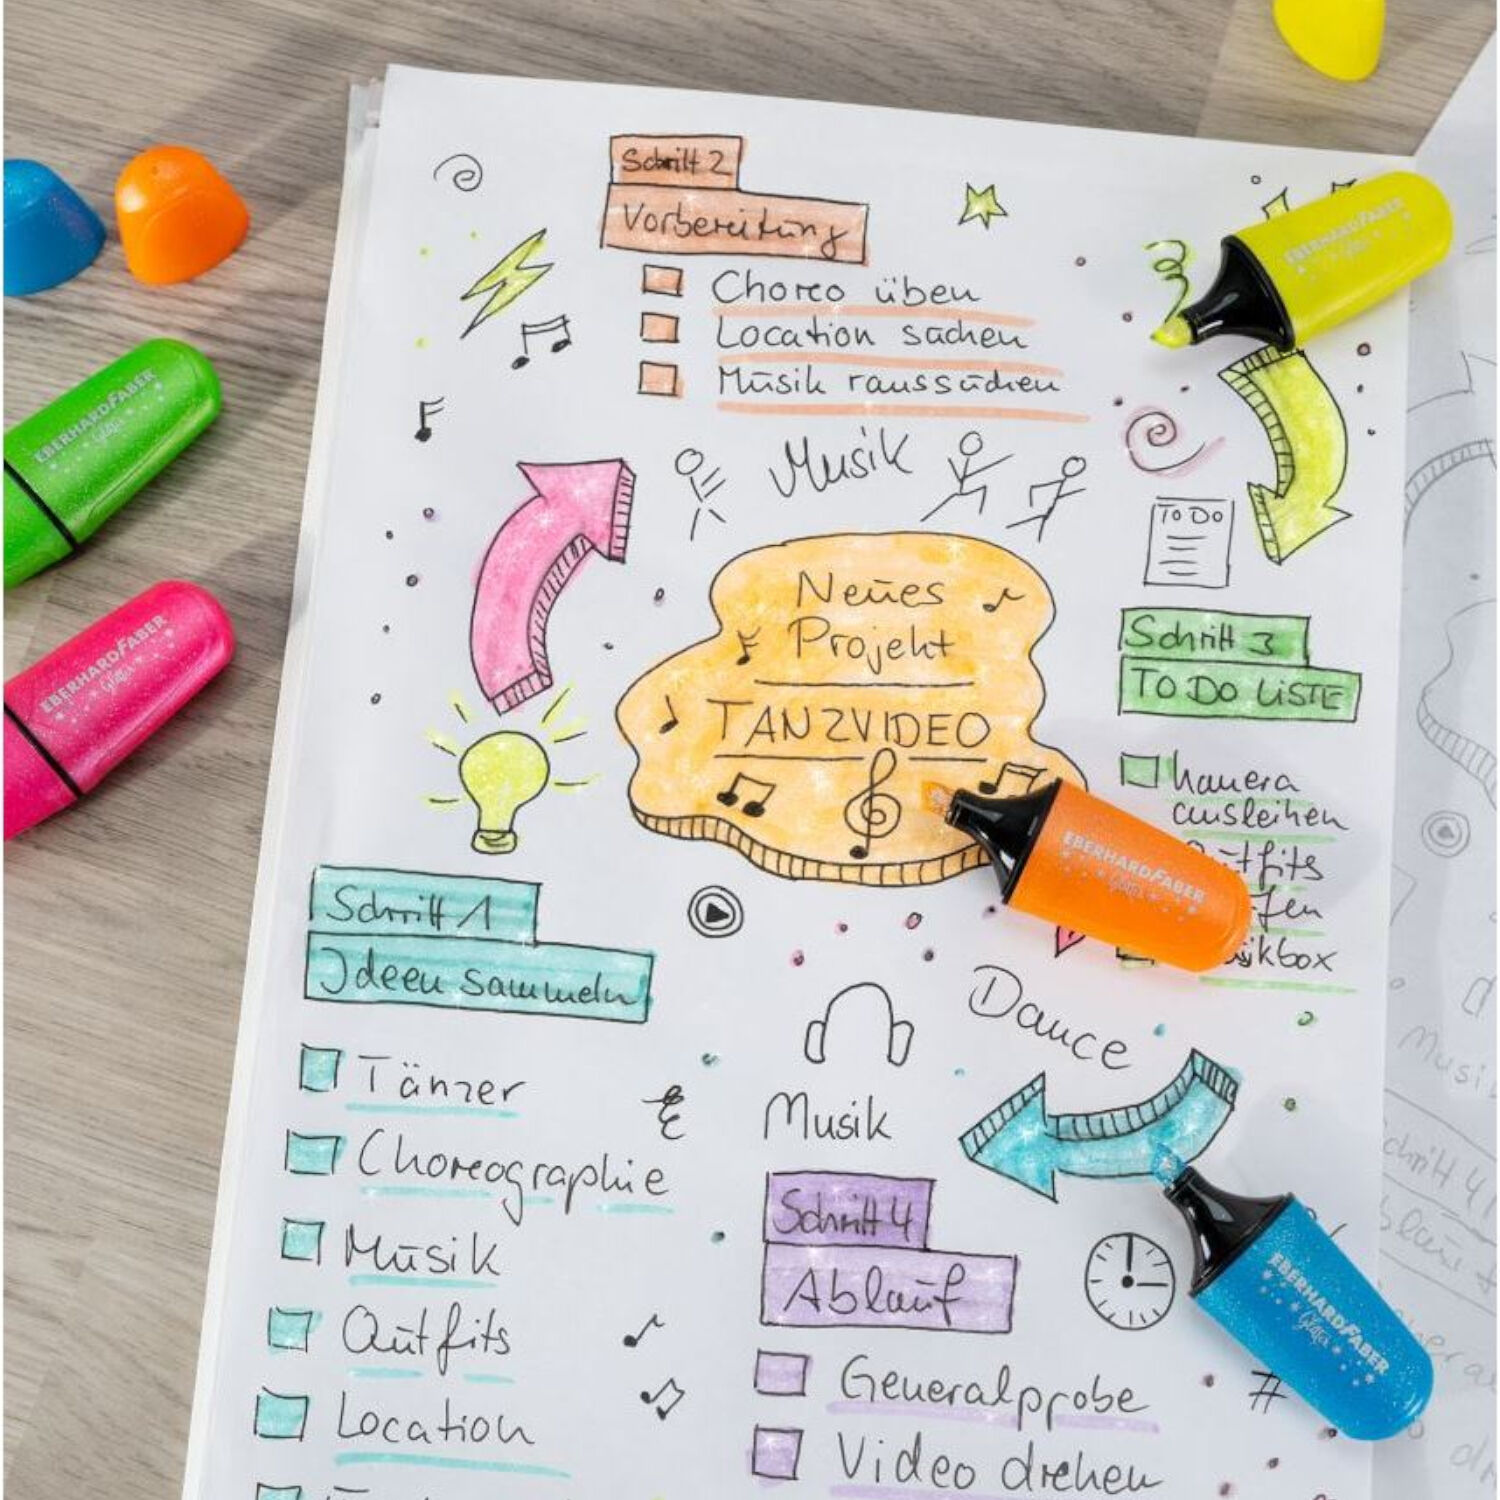 Schritt 2
Vorbereitung
Choreo üben
Location suchen
Musik raussuchen
Musik
TO DO
Neues
Projekt
TANZVIDEO
Schritt 3
TO DO LISTE
Kamera
ausleihen
Schritt 1
Ideen sammeln
Tänzer
Choreographie
Musik
Outfits
Location
Dance
Musik
Schritt 4
Ablauf
Generalprobe
Video drehen
#
EBERHARDFABER
Glitter
EBERHARDFABER
Glitter
EBERHARDFABER
EBERHARDFABER
Glitter
EBERHARDFABER
Glitter